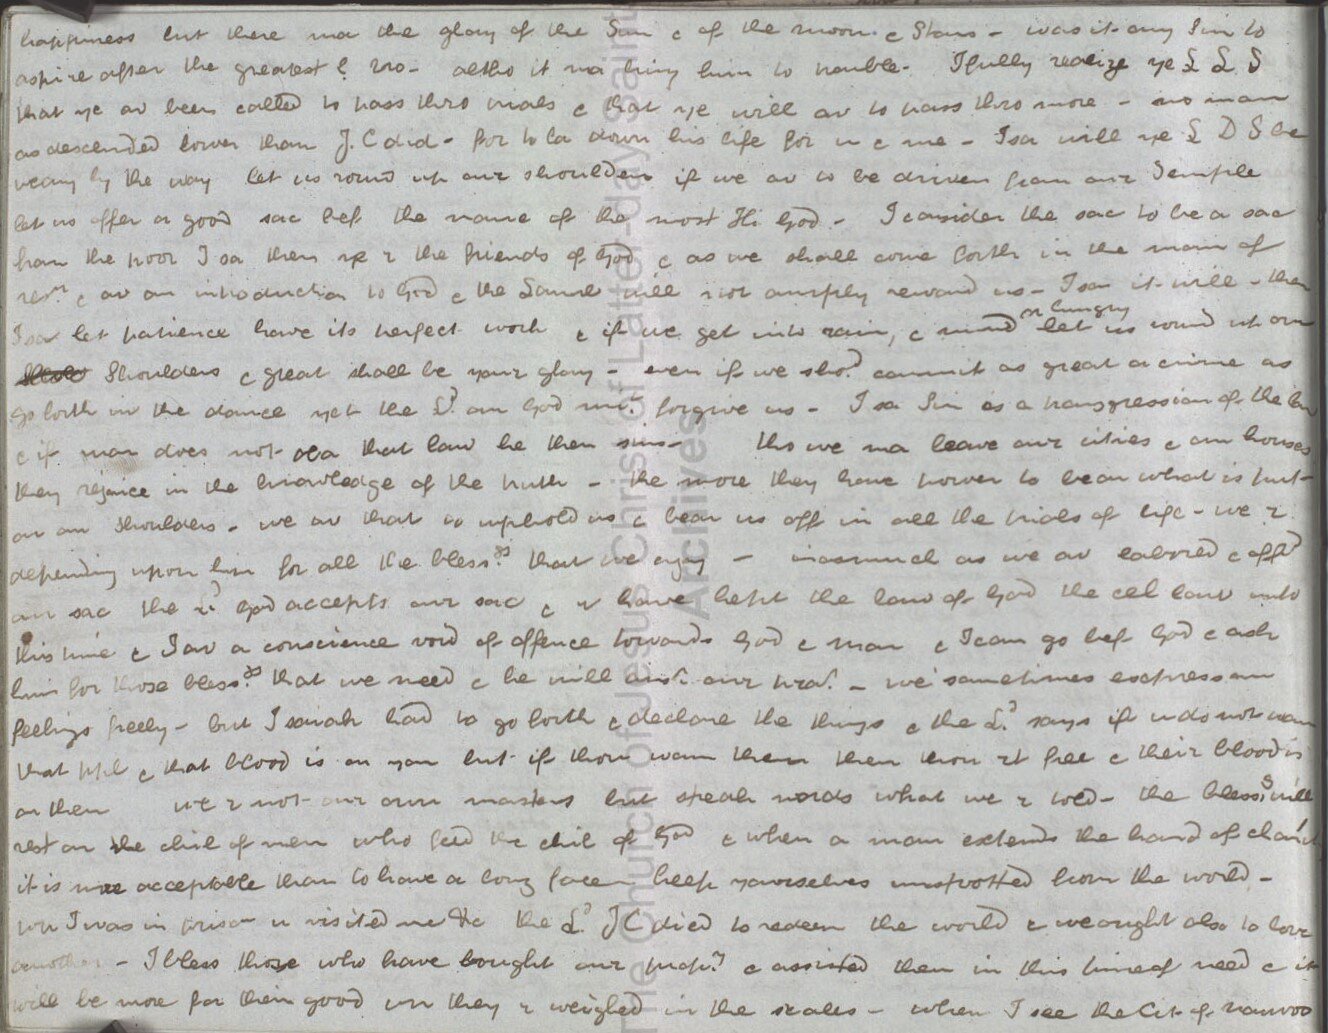 happiness but there ma the glory of the Sun & of the moon & Stars - was it any Sin to
aspire after the greatest & no - altho it ma bring him to trouble - I fully realize ye L L D
that ye av been called to pass thro trials & that ye will av to pass thro more - no man
as descended lower than J. C did - for to la down his life for u & me - I sa will ye L D S be
weary by the way let us round up our shoulders if we av to be driven from our Temple
let us offer a good sac bef the name of the most Hi God - I consider the sac to be a sac
from the poor I sa then ye r the friends of God & as we shall come forth in the morn of
resn & av an introduction to God & the Saml will not amply reward us - I sa it will - then
I sa let patience have its perfect work & if we get into rain, & mud r hungry let us round up our
Shoulders & great shall be your glory - even if we shod commit as great a crime as
go forth in the dance yet the Ld our God mt forgive us - I sa Sin is a transgression of the law
& if man does not oba that law he then sins - tho we ma leave our cities & our houses
they rejoice in the knowledge of the truth - the more they have power to bear what is put
on our shoulders - we av that to uphold us & bear us off in all the trials of life - we r
depending upon him for all the blessgs that we enjoy - inasmuch as we av labored & offd
our sac the Ld God accepts our sac & u have kept the law of God the cel law unto
this time & I av a conscience void of offence towards God & man & I can go bef God & ask
him for those blessgs that we need & he will ansr our pras - we sometimes express our
feelings freely - but I sarah had to go forth & declare the things & the Ld says if u do not warn
that ppl & that blood is on you but if thou warn them then thou rt free & their blood is
on them we r not our own masters but speak words what we r told - the blessgs will
rest on the chil of men who feed the chil of God & when a man extends the hand of charity
it is more acceptable than to have a long face keep yourselves unspotted from the world -
wn I was in prison u visited me &c the Ld J C died to redeem the world & we ought also to love
another - I bless those who have bought our propy & assisted them in this time of need & it
will be more for their good wn they r weighed in the scales - when I see the Cit of Nauvoo
The Church of Jesus Christ of Latter-day Saints
Archives